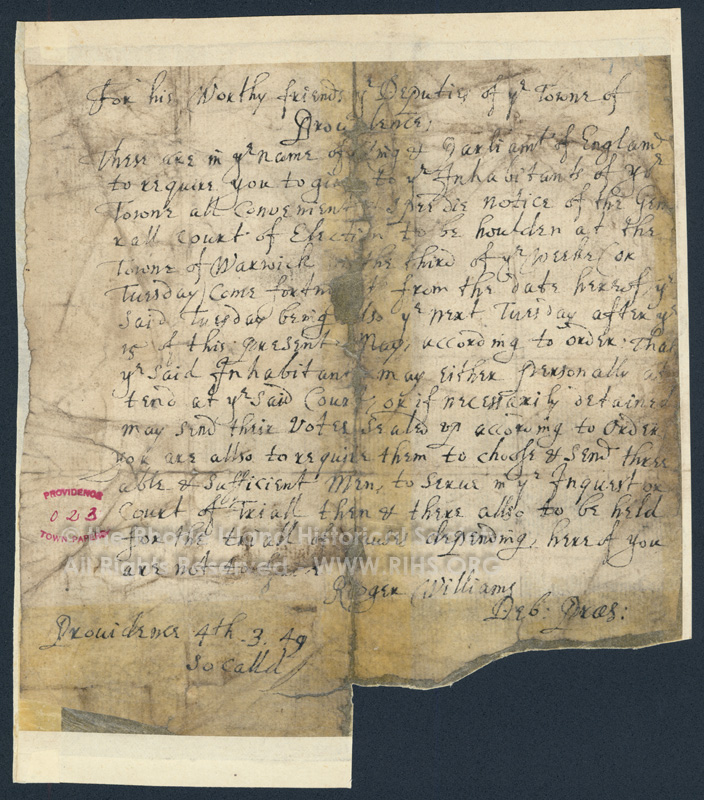 For his Worthy friends ye Deputies of ye Towne of
Providence,
These are in ye name of King & Parliamt of England
to require you to give to ye Inhabitants of yor
Towne all convenient & speedie notice of the Gene
rall Court of Election to be houlden at the
Towne of Warwick on the third of ye weeke, or
Tuesday, come fortnight from the date hereof, ye
said Tuesday being also ye next Tuesday after ye
15 of this present May, according to order. That
ye said Inhabitants may either personally at
tend at ye said Court, or if necessarily detained
may send their Votes sealed up according to order
are allso to require them to choose & send three
able & sufficient Men, to serve in ye Inquest or
Court of Triall then & there allso to be held
for the triall of depending, hereof you
are not to
Roger Williams
Dep: Præs:
Providence 4th. 3. 49
so calld
PROVIDENCE
023
TOWN PAPERS
The Rhode Island Historical Society
All Rights Reserved - WWW.RIHS.ORG